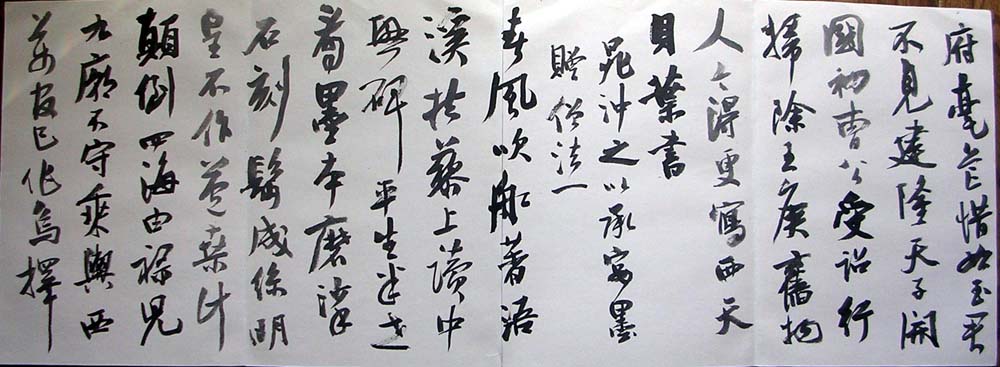 府毫芒惜如玉君
不見建隆天子開
國初曹公受詔行
掃除王侯舊物
人今得更寫西天
貝葉書
晁沖之以承宴墨
贈僧法一
春風吹船著浯
溪扶藜上讀中
興碑平生半世
看墨本磨挲
石刻鬢成絲明
皇不作苞桑計
顛倒四海由祿兒
九廟不守乘輿西
萬官已作烏擇